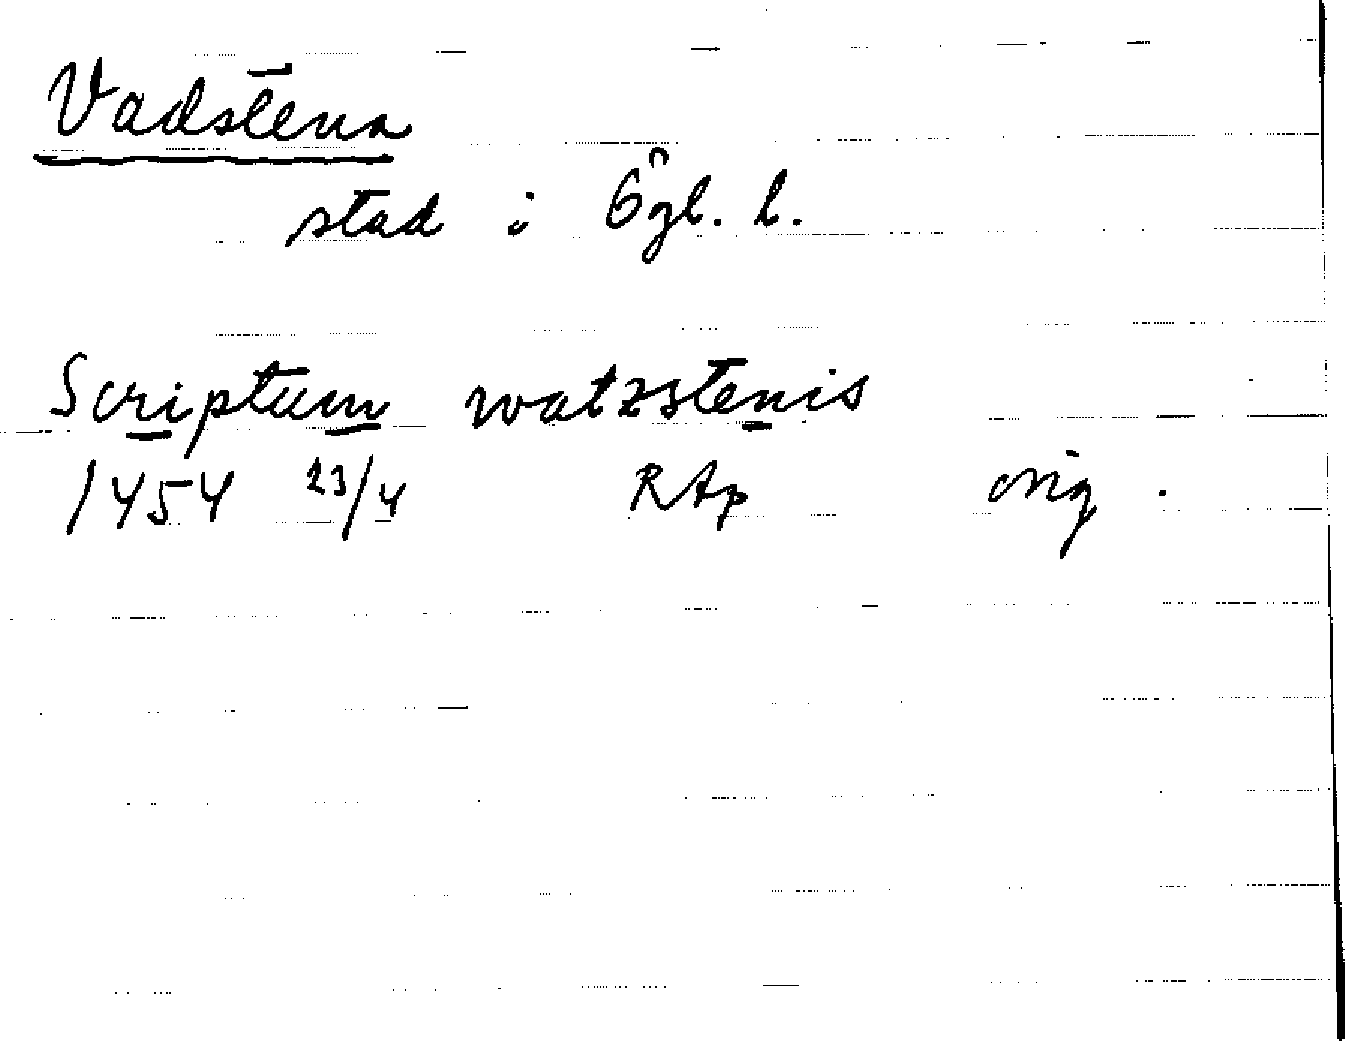 Vadstena
stad i Ögl. l.
Scriptum watzstenis
1454 23/4 RAp orig.